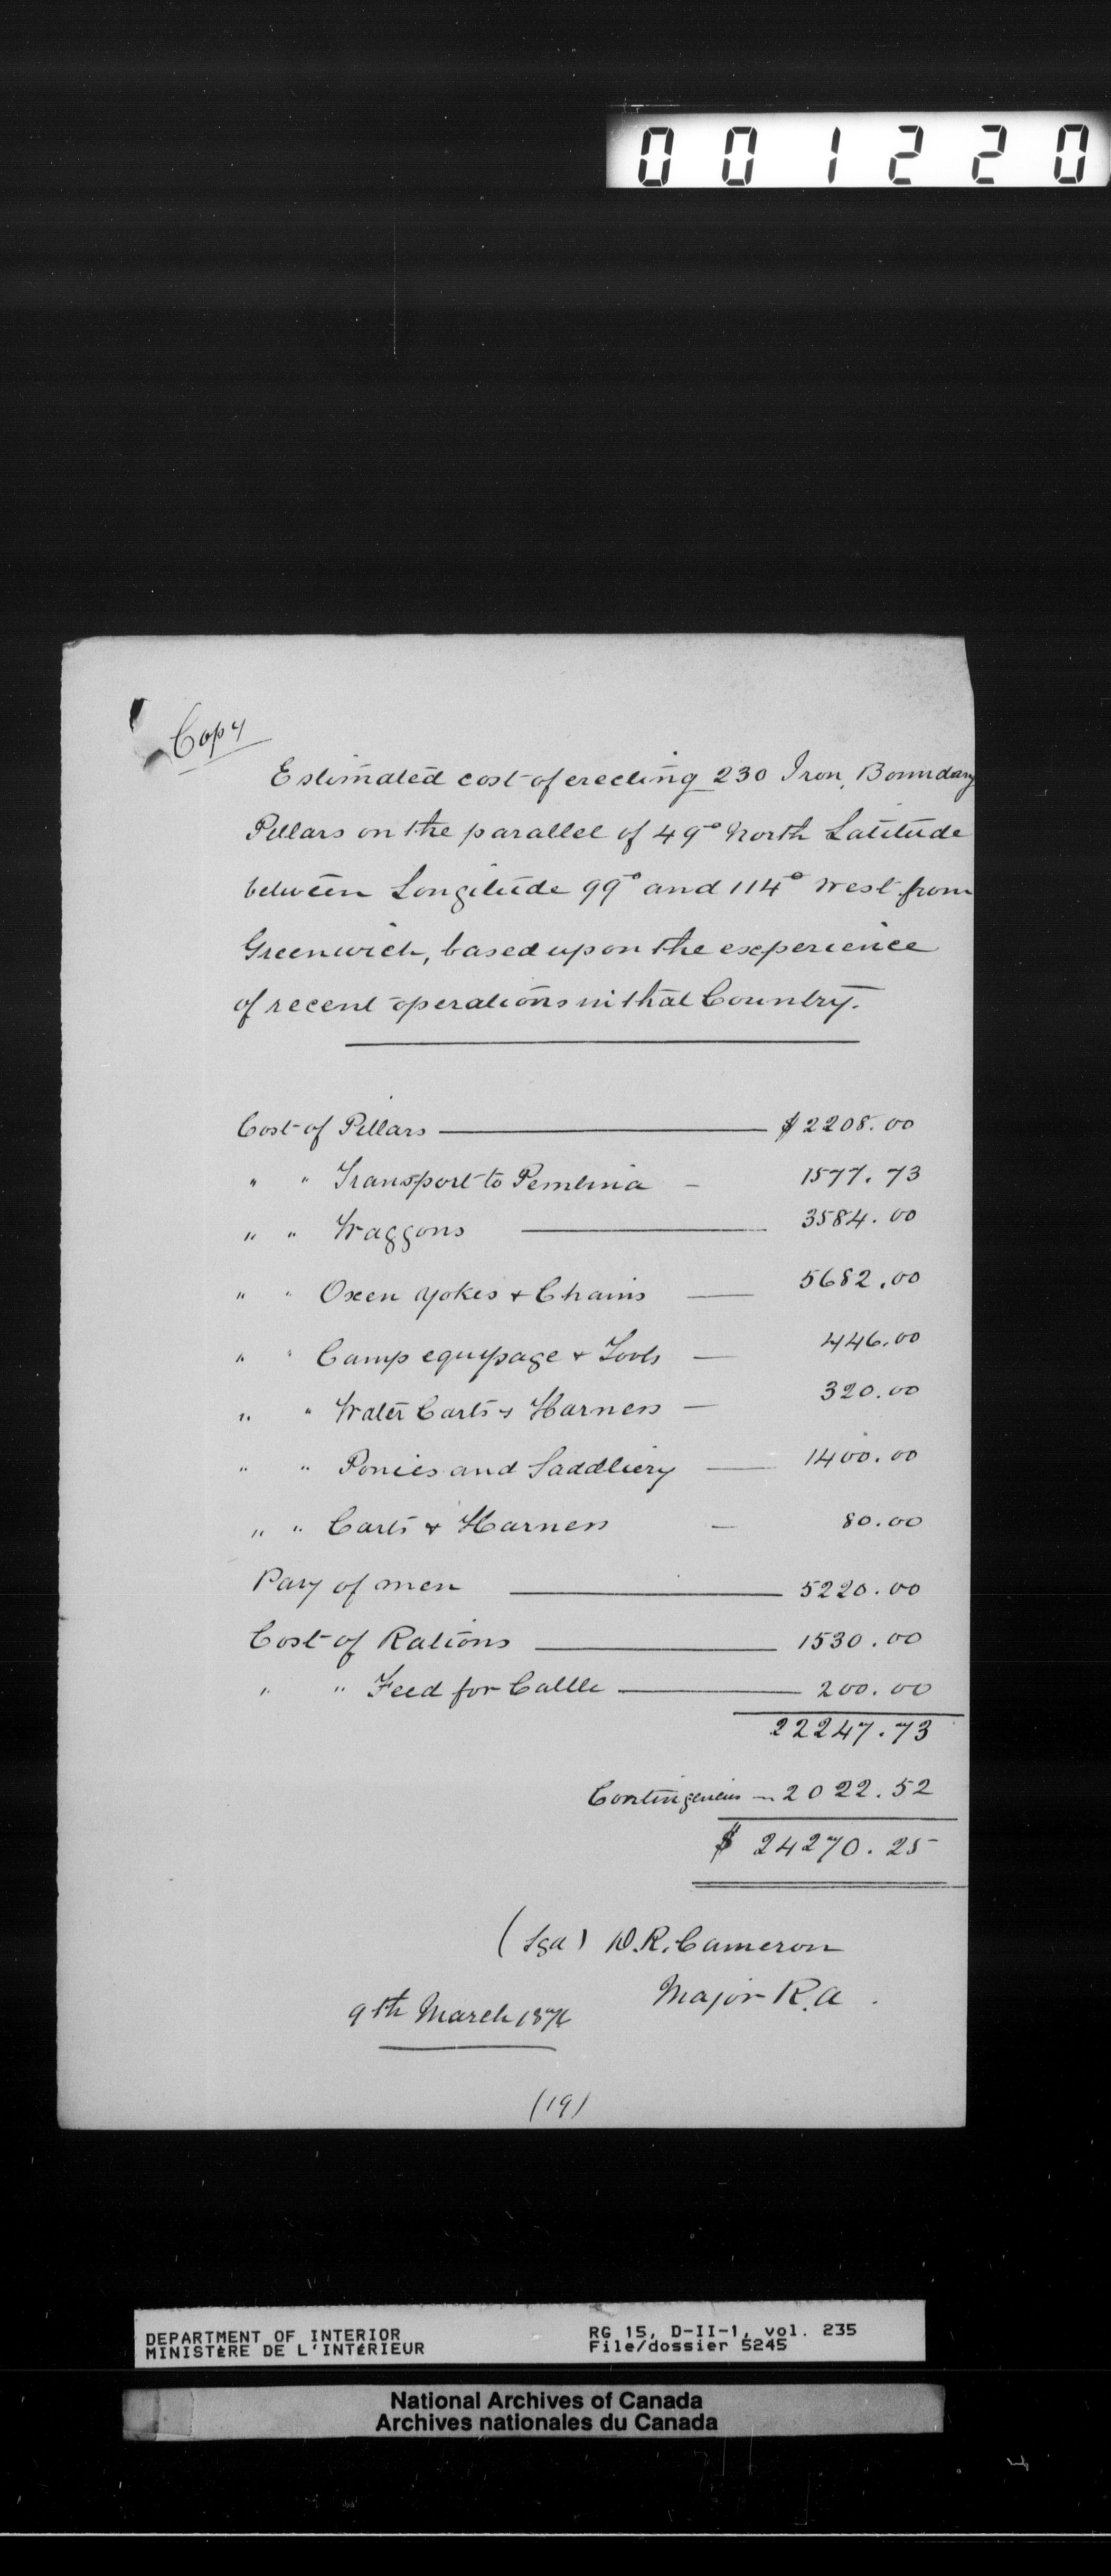 001220
Copy
Estimated cost of erecting 230 Iron, Boundary
Pillars on the parallel of 49° North Latitude
between Longitude 99° and 114° West from
Greenwich, based upon the experience
of recent operations in that Country.
Cost of Pillars — $2208.00
" " Transport to Pembina — 1577.73
" " Waggons — 3584.00
" " Oxen Yokes & Chains — 5682.00
" " Camp equipage & Tools — 446.00
" " Water Carts & Harness — 320.00
" " Ponies and Saddlery — 1400.00
" " Carts & Harness — 80.00
Pay of men — 5220.00
Cost of Rations — 1530.00
" " Feed for Cattle — 200.00
22247.73
Contingencies — 2022.52
$ 24270.25
(Sgd) D.R. Cameron
Major R.A.
9th March 1876
(19)
DEPARTMENT OF INTERIOR RG 15, D-II-1, vol. 235
MINISTÈRE DE L'INTÉRIEUR File/dossier 5245
National Archives of Canada
Archives nationales du Canada